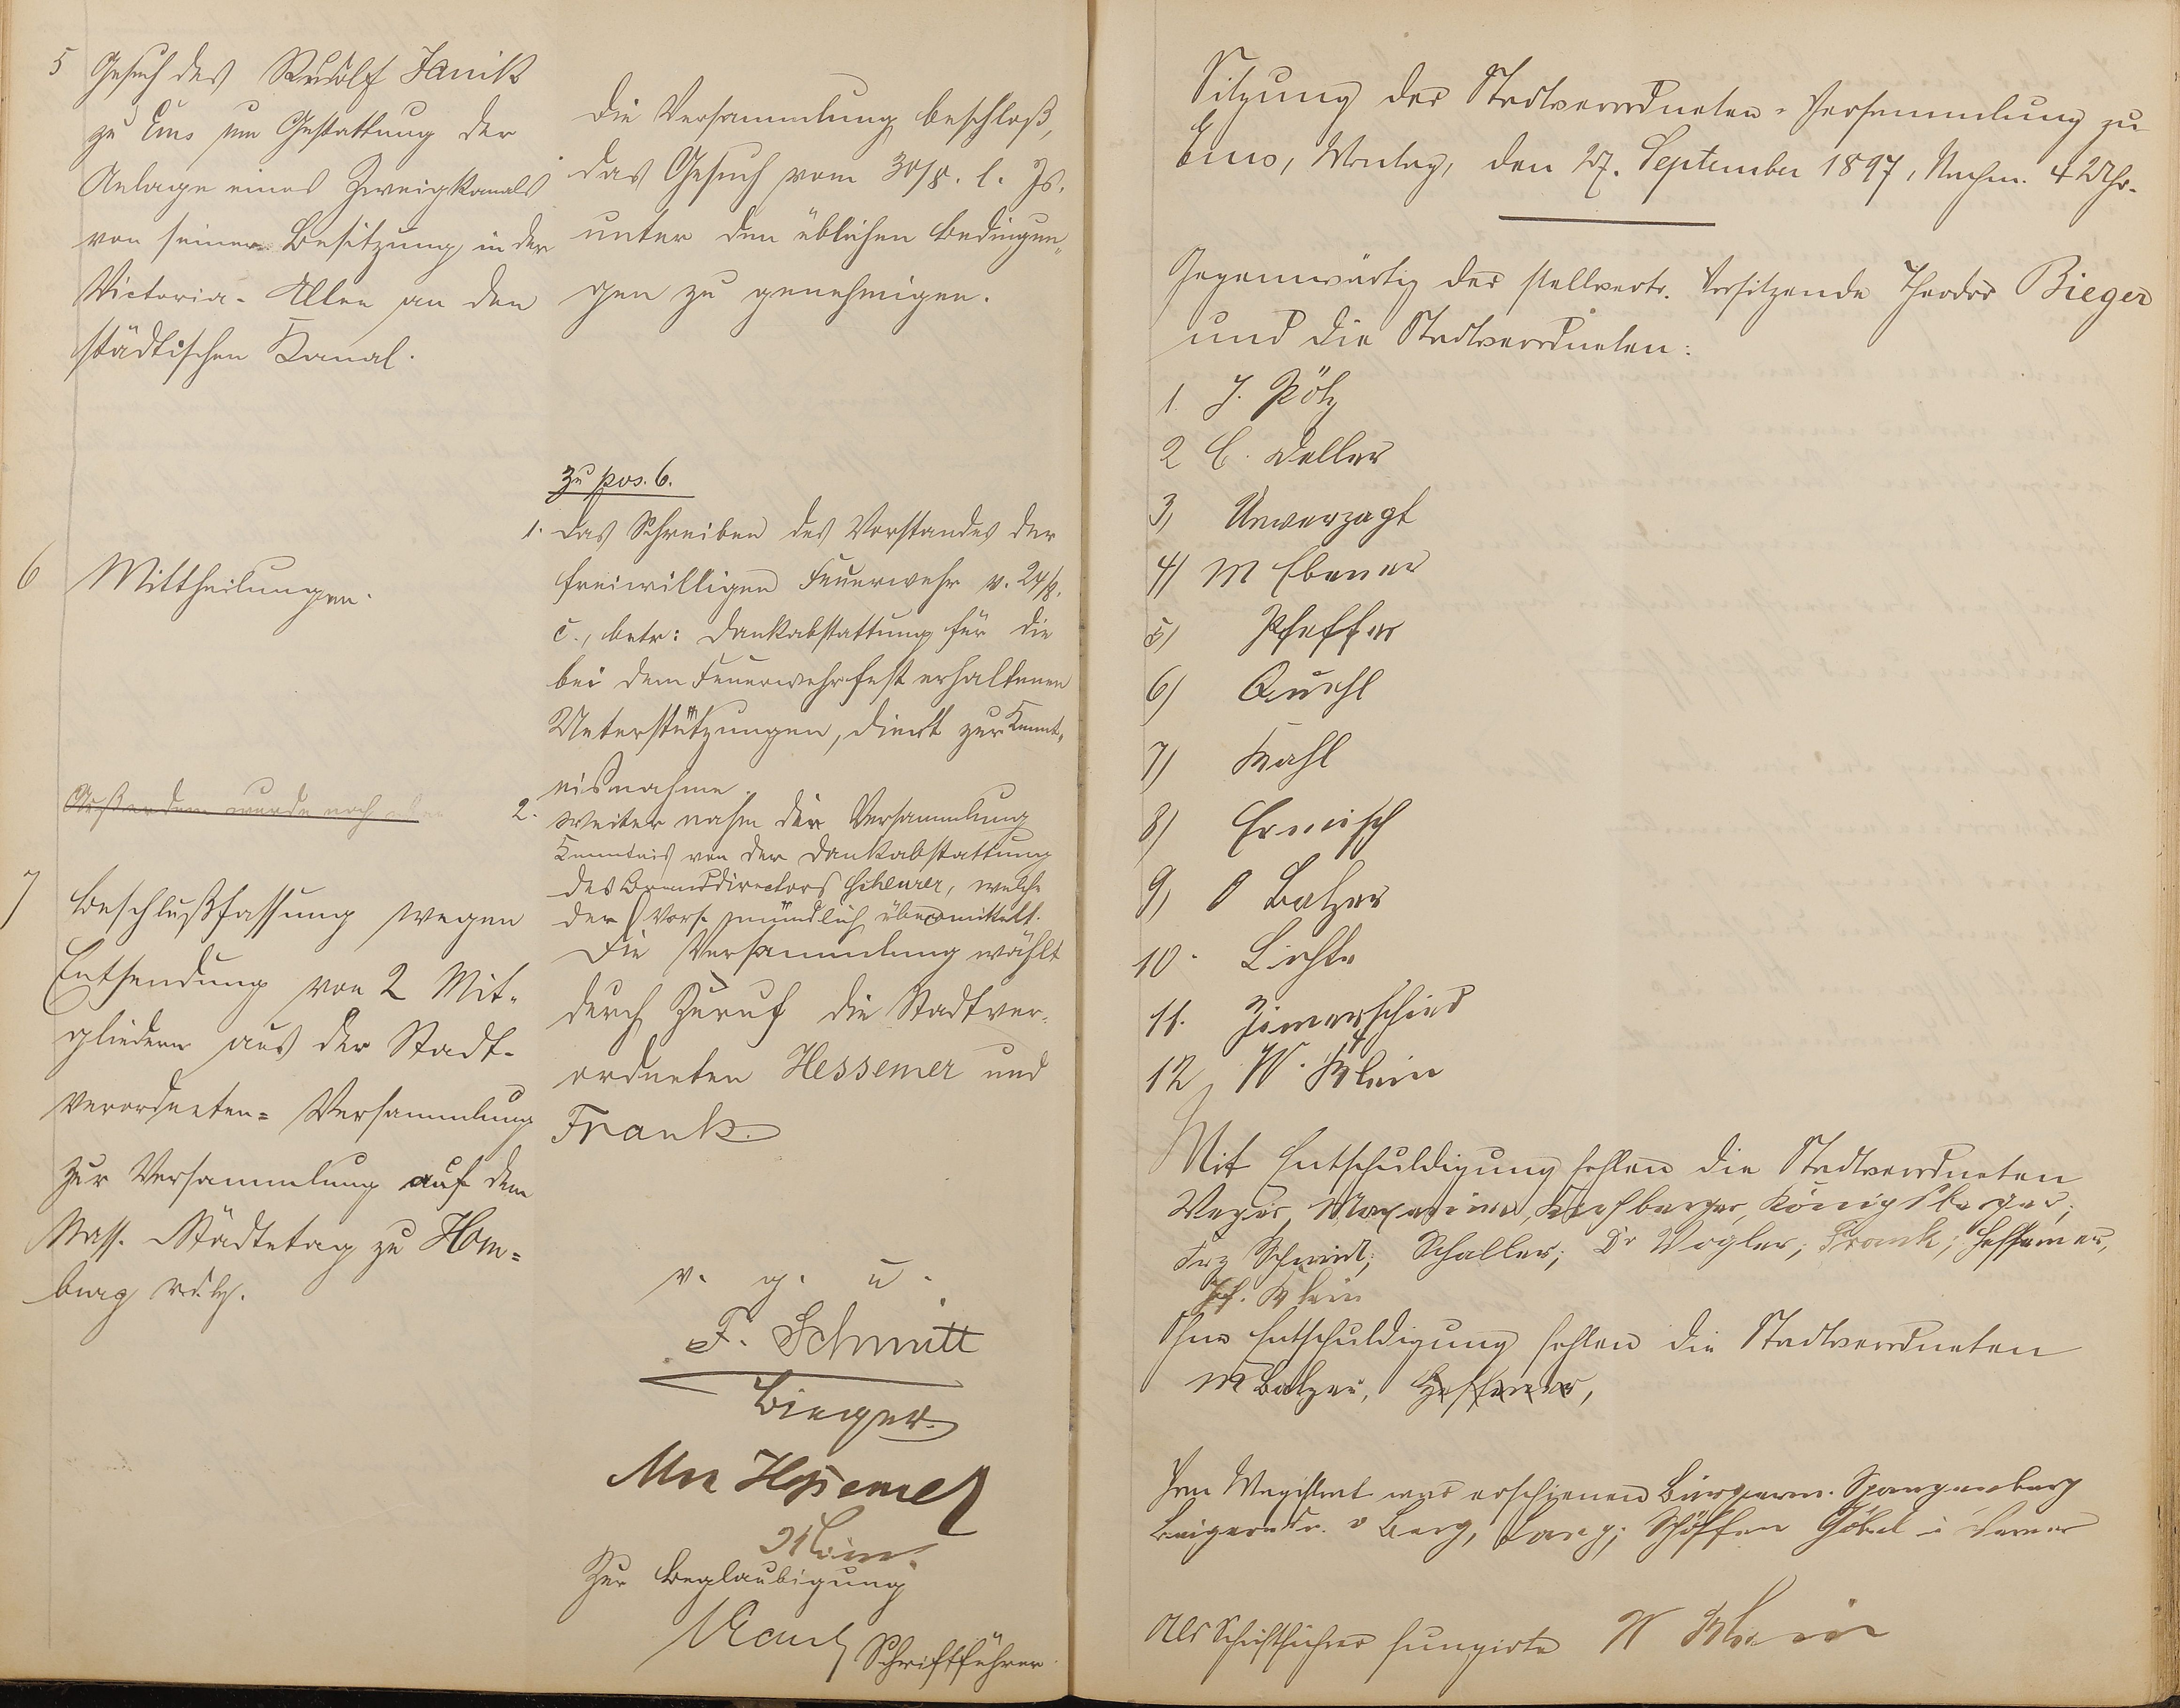 5 Gesuch des Rudolf Janik
zu Ems um Gestattung der
Anlage eines Zweigkanals
von seiner Besitzung in der
Victoria-Allee an den
städtischen Kanal.
Die Versammlung beschloß,
das Gesuch vom 30/8. l. Js.
unter den üblichen Bedingun-
gen zu genehmigen.
6 Mittheilungen.
Zu pos. 6.
1. Das Schreiben des Vorstandes der
freiwilligen Feuerwehr v. 24/8.
c., betr: Dankabstattung für die
bei dem Feuerwehrfest erhaltenen
Unterstützungen, dient zur Kennt-
nißnahme.
Außerdem wurde noch
2. Weiter nahm die Versammlung
Kenntnis von der Dankabstattung
des Branddirectors Scheurer, welche
der Vors. mündlich übermittelt.
7 Beschlußfassung wegen
Entsendung von 2 Mit-
gliedern aus der Stadt-
verordneten-Versammlung
zur Versammlung auf dem
Nass. Städtetag zu Hom-
burg
Die Versammlung wählt
durch Zuruf die Stadtver-
ordneten Hessemer und
Frank.
v. g. u.
F. Schmitt
Bieger
Hessemer
Klein
Zur Beglaubigung
Schriftführer
Sitzung der Stadtverordneten-Versammlung zu
Ems, Montag, den 27. September 1897, Nachm. 4 Uhr.
Gegenwärtig der stellvertr. Vorsitzende Theodor Bieger
und die Stadtverordneten:
1. J. Pötz
2 C. Deller
3) Unverzagt
4) M Ebener
5) Pfeffer
6) Quehl
7) Kahl
8) Ermisch
9) O Balzer
10. Lichte
11. Zimerschied
12, W. Klein
Mit Entschuldigung fehlen die Stadtverordneten
Kirchberger, Königsberger,
Frz Schmidt; Schaller; Dr Vogler; Frank; Hessemer,
Klein
Ohne Entschuldigung fehlen die Stadtverordneten
M Balzer, Hessemer,
Vom Magistrat war erschienen Bürgerm. Spangenberg
Beigeordn. v Berg, Lang; Schöffen Göbel u
Als Schriftführer fungirte W Klein